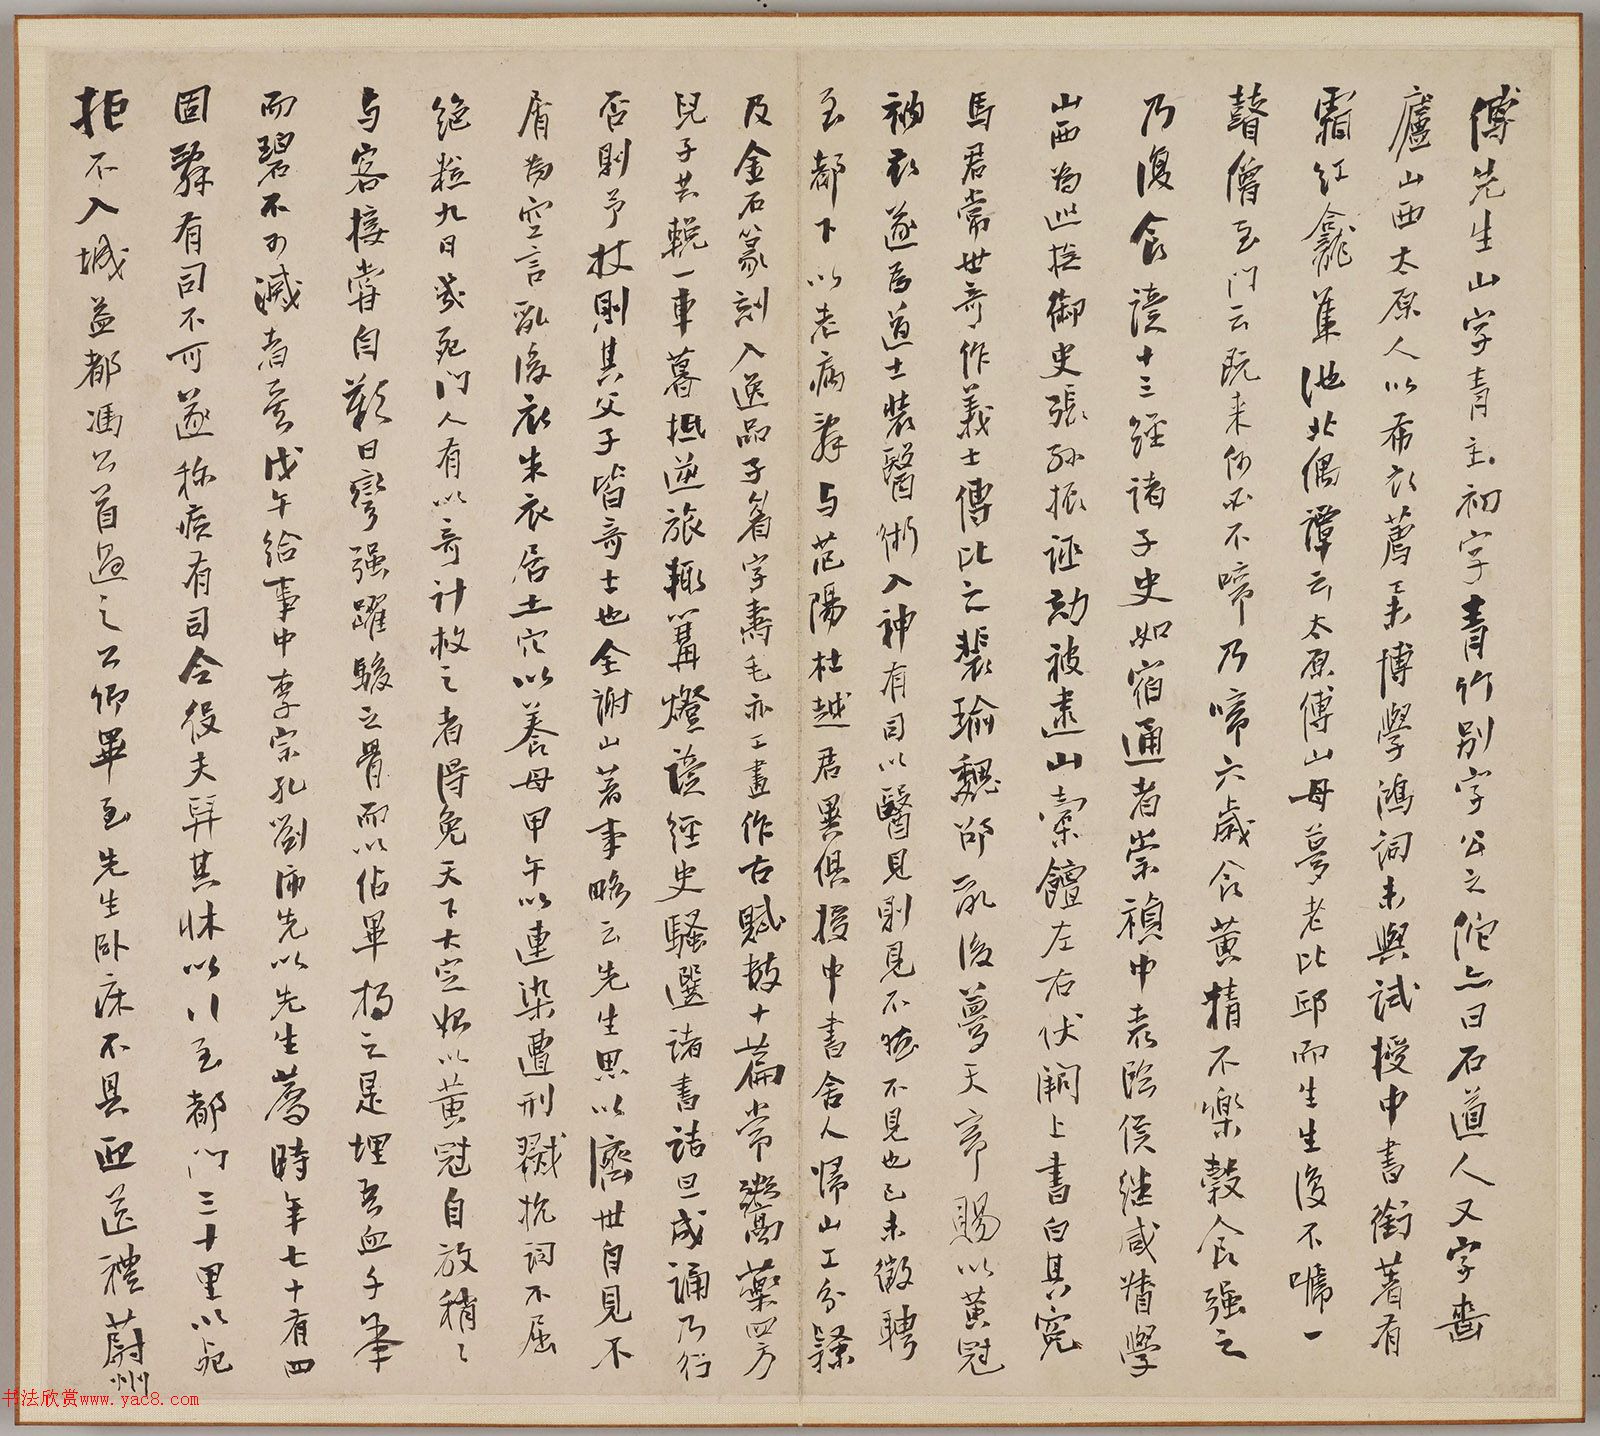 傅先生山字青主初字青竹别字公之佗亦曰石道人又字嗇
廬山西太原人以布衣薦举博學鴻詞未與試授中書銜著有
霜红龕集池北偶譚云太原傅山母夢老比邱而生生復不啼一
瞽僧至门云既来何必不啼乃啼六歲食黄精不樂穀食强之
乃復食读十三經诸子史如宿通者崇禎中袁臨侯继咸督學
山西為巡撫御史張孙振诬劾被逮山橐饘左右伏闕上書白其冤
馬君常世奇作義士傳比之裴瑜魏邵乱後夢天帝賜以黄冠
衲衣遂為道士装醫術入神有司以醫見則見不然不見也己未徵聘
至都下以老病辞与范陽杜越君異俱授中書舍人帰山工分隸
及金石篆刻入逸品子眉字壽毛亦工畫作古賦数十篇常鬻藥四方
兒子共輓一車暮抵逆旅輒篝燈读經史騷選诸書诘旦成誦乃行
否則予杖則其父子皆奇士也全謝山著事略云先生思以濟世自見不
屑為空言乱後衣朱衣居土穴以養母甲午以連染遭刑戮抗詞不屈
绝粒九日幾死门人有以奇计救之者得免天下大定始以黄冠自放稍稍
与客接嘗自歎曰彎强躍駿之骨而以佔畢朽之是埋吾血千年
而碧不可滅者矣戊午给事中李宗孔劉沛先以先生薦時年七十有四
固辞有司不可遂称疾有司令役夫舁其牀以行至都门三十里以死
拒不入城益都馮公首過之公卿畢至先生卧床不具迎送禮蔚州
书法欣赏www.yac8.com